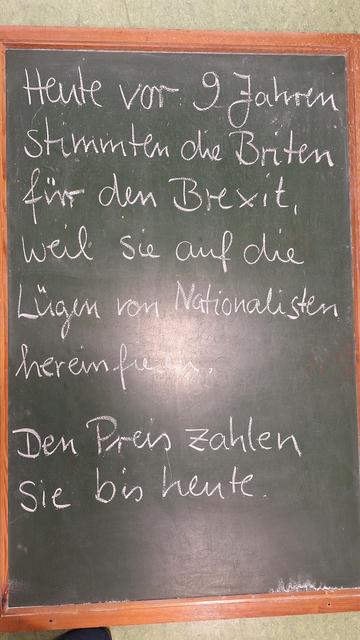 Heute vor 9 Jahren
stimmten die Briten
für den Brexit,
weil sie auf die
Lügen von Nationalisten
hereinfielen.
Den Preis zahlen
Sie bis heute.